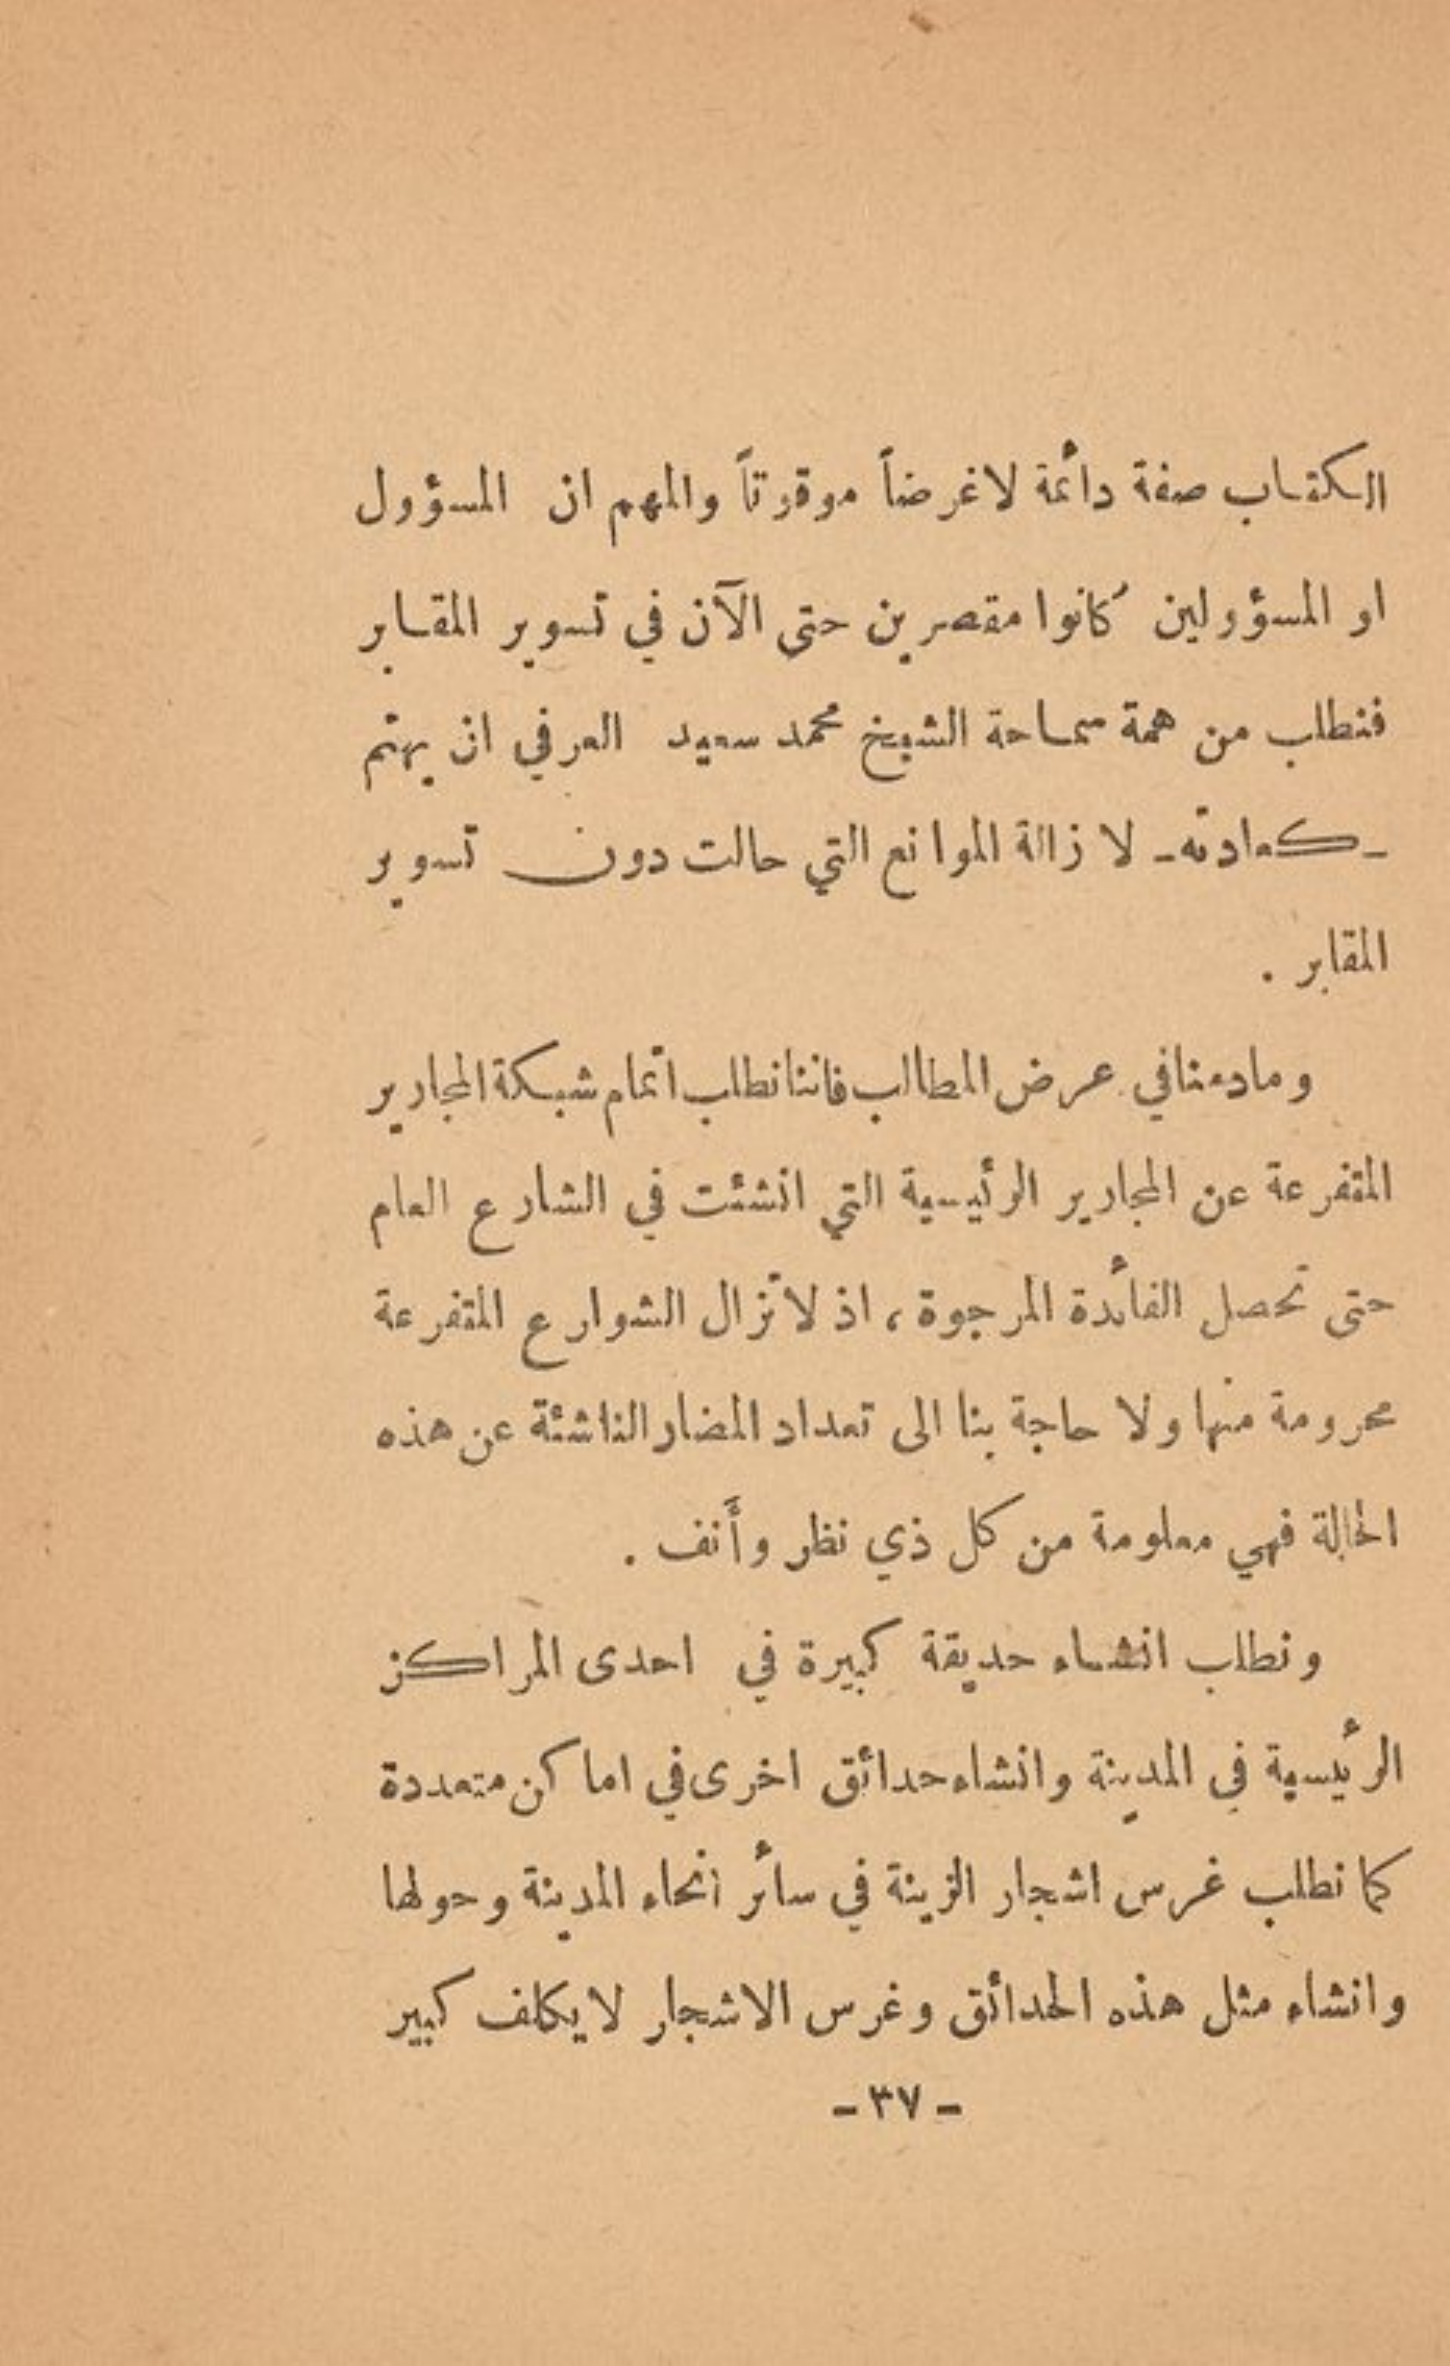 الكتاب صفة دائمة لاغرضاً موقوتاً والمهم ان المسؤول
او المسؤولين كانوا مقصرين حتى الآن في تسوير المقابر
فنطلب من همة سماحة الشيخ محمد سعيد العرفي ان يهتم
ـ كعادته ـ لازالة الموانع التي حالت دون تسوير
المقابر .
ومادمنا في عرض المطالب فاننا نطلب اتمام شبكة المجارير
المتفرعة عن المجارير الرئيسية التي انشئت في الشارع العام
حتى تحصل الفائدة المرجوة ، اذ لاتزال الشوارع المتفرعة
محرومة منها ولا حاجة بنا الى تعداد المضار الناشئة عن هذه
الحالة فهي معلومة من كل ذي نظر وأنف .
ونطلب انشاء حديقة كبيرة في احدى المراكز
الرئيسية في المدينة وانشاء حدائق اخرى في اماكن متعددة
كما نطلب غرس اشجار الزينة في سائر انحاء المدينة وحولها
وانشاء مثل هذه الحدائق وغرس الاشجار لايكلف كبير
ـ ٣٧ ـ